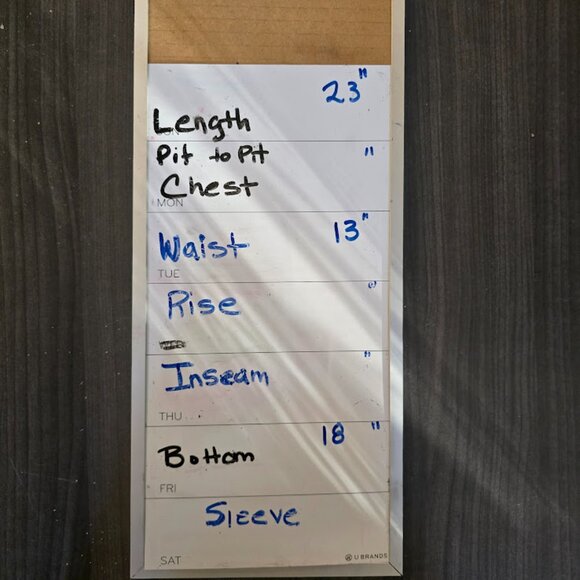 23"
Length
Pit to Pit "
Chest
MON
Waist 13"
TUE
Rise "
Inseam "
THU
18 "
Bottom
FRI
Sleeve
SAT
U BRANDS